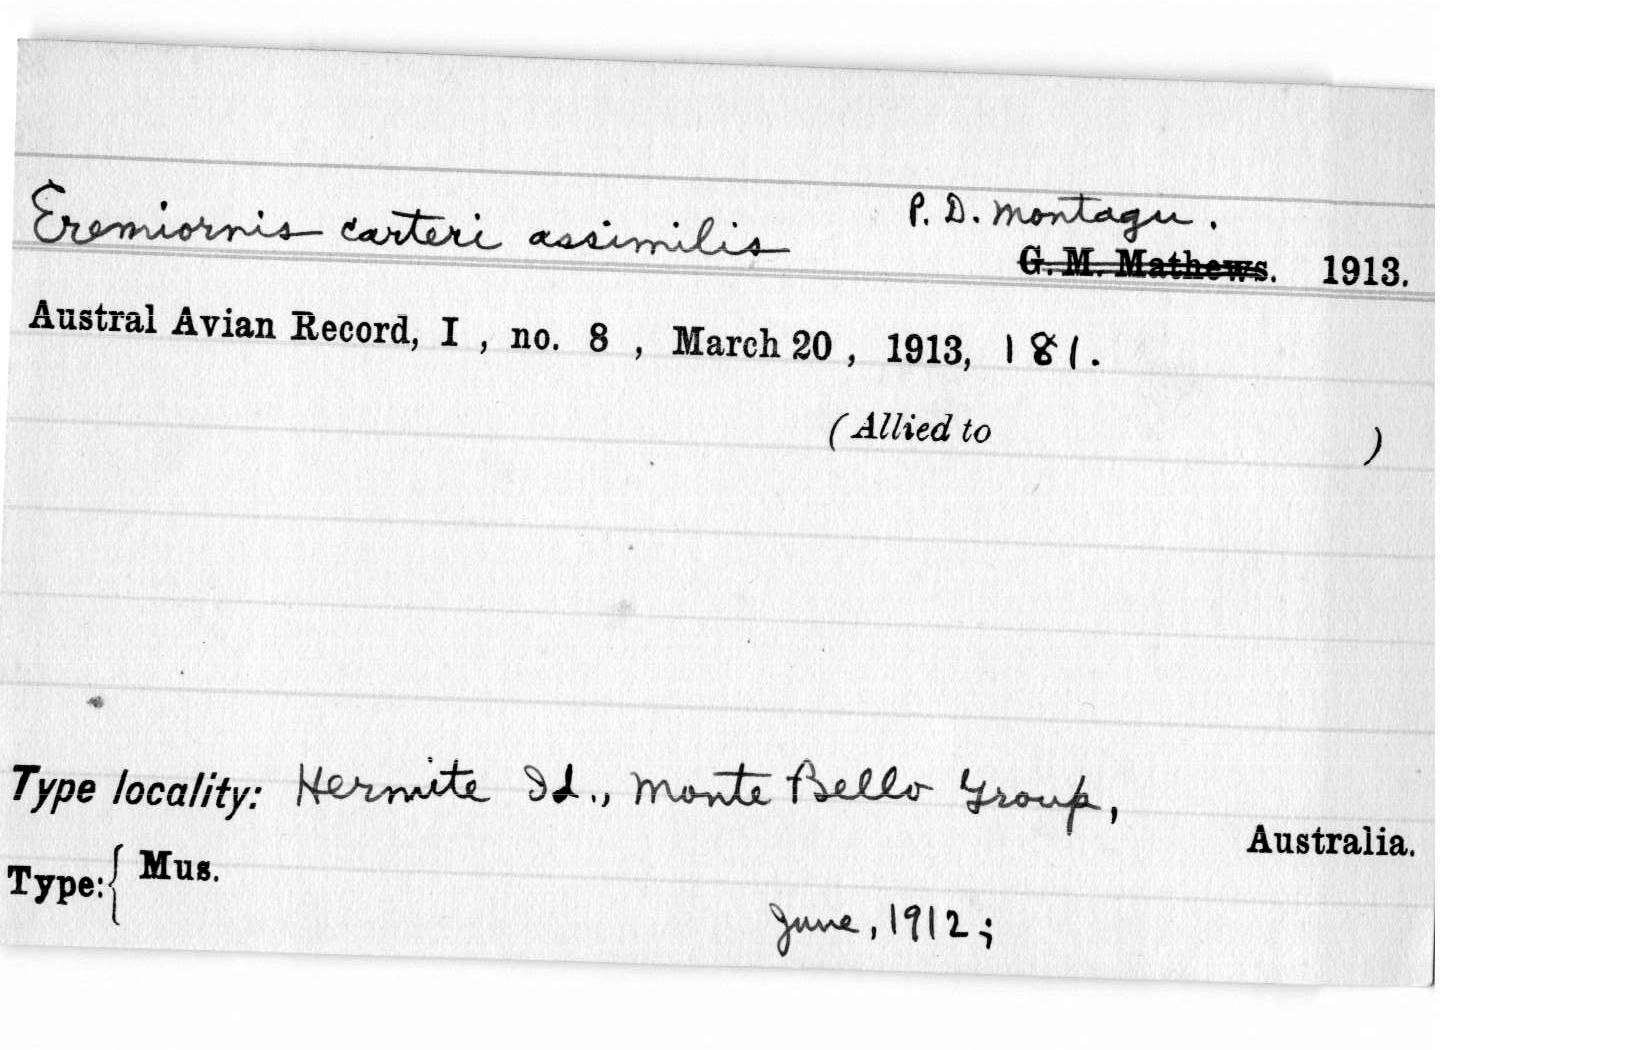 Eremiornis carteri assimilis P. D. Montagu.
G. M. Mathews. 1913.
Austral Avian Record, I , no. 8 , March 20 , 1913, 181.
(Allied to )
Type locality: Hermite Id., Monte Bello Group,
Australia.
Type:{ Mus.
June, 1912;